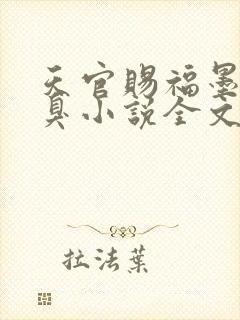 天官賜福墨
臭小説全文
拉法葉